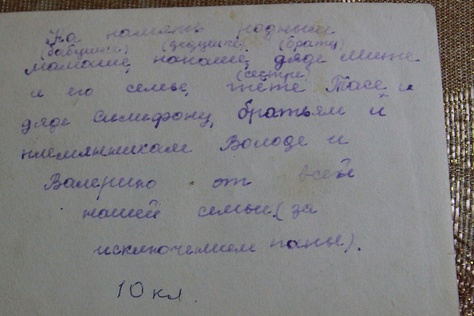 На память родным
(бабушке) (дедушке) (брату)
мамаше, папаше, дяде Мите
(сестре)
и его семье, тёте Тасе и
дяде Симефону, братьям и
племянникам Володе и
Валерию от всей
нашей семьи (за
исключением папы).
10 кл.